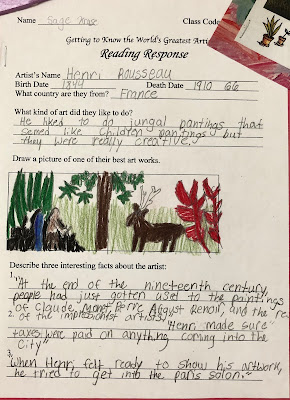 Name Sage
Class Code
Getting to Know the World's Greatest Arti
Reading Response
Artist's Name Henri Rousseau
Birth Date 1844 Death Date 1910 66
What country are they from? France
What kind of art did they like to do?
He liked to do jungal pantings that
semed like children pantings but
they were really creative.
Draw a picture of one of their best art works.
Describe three interesting facts about the artist:
1. "At the end of the nineteenth century,
people had just gotten used to the paintings
of Claude Monet, Pierre August Renoir, and the res
of the impresionist artists."
2. "Henri made sure
taxes were paid on anything coming into the
City"
3. "When Henri felt ready to show his artwork,
he tried to get into the paris salon."